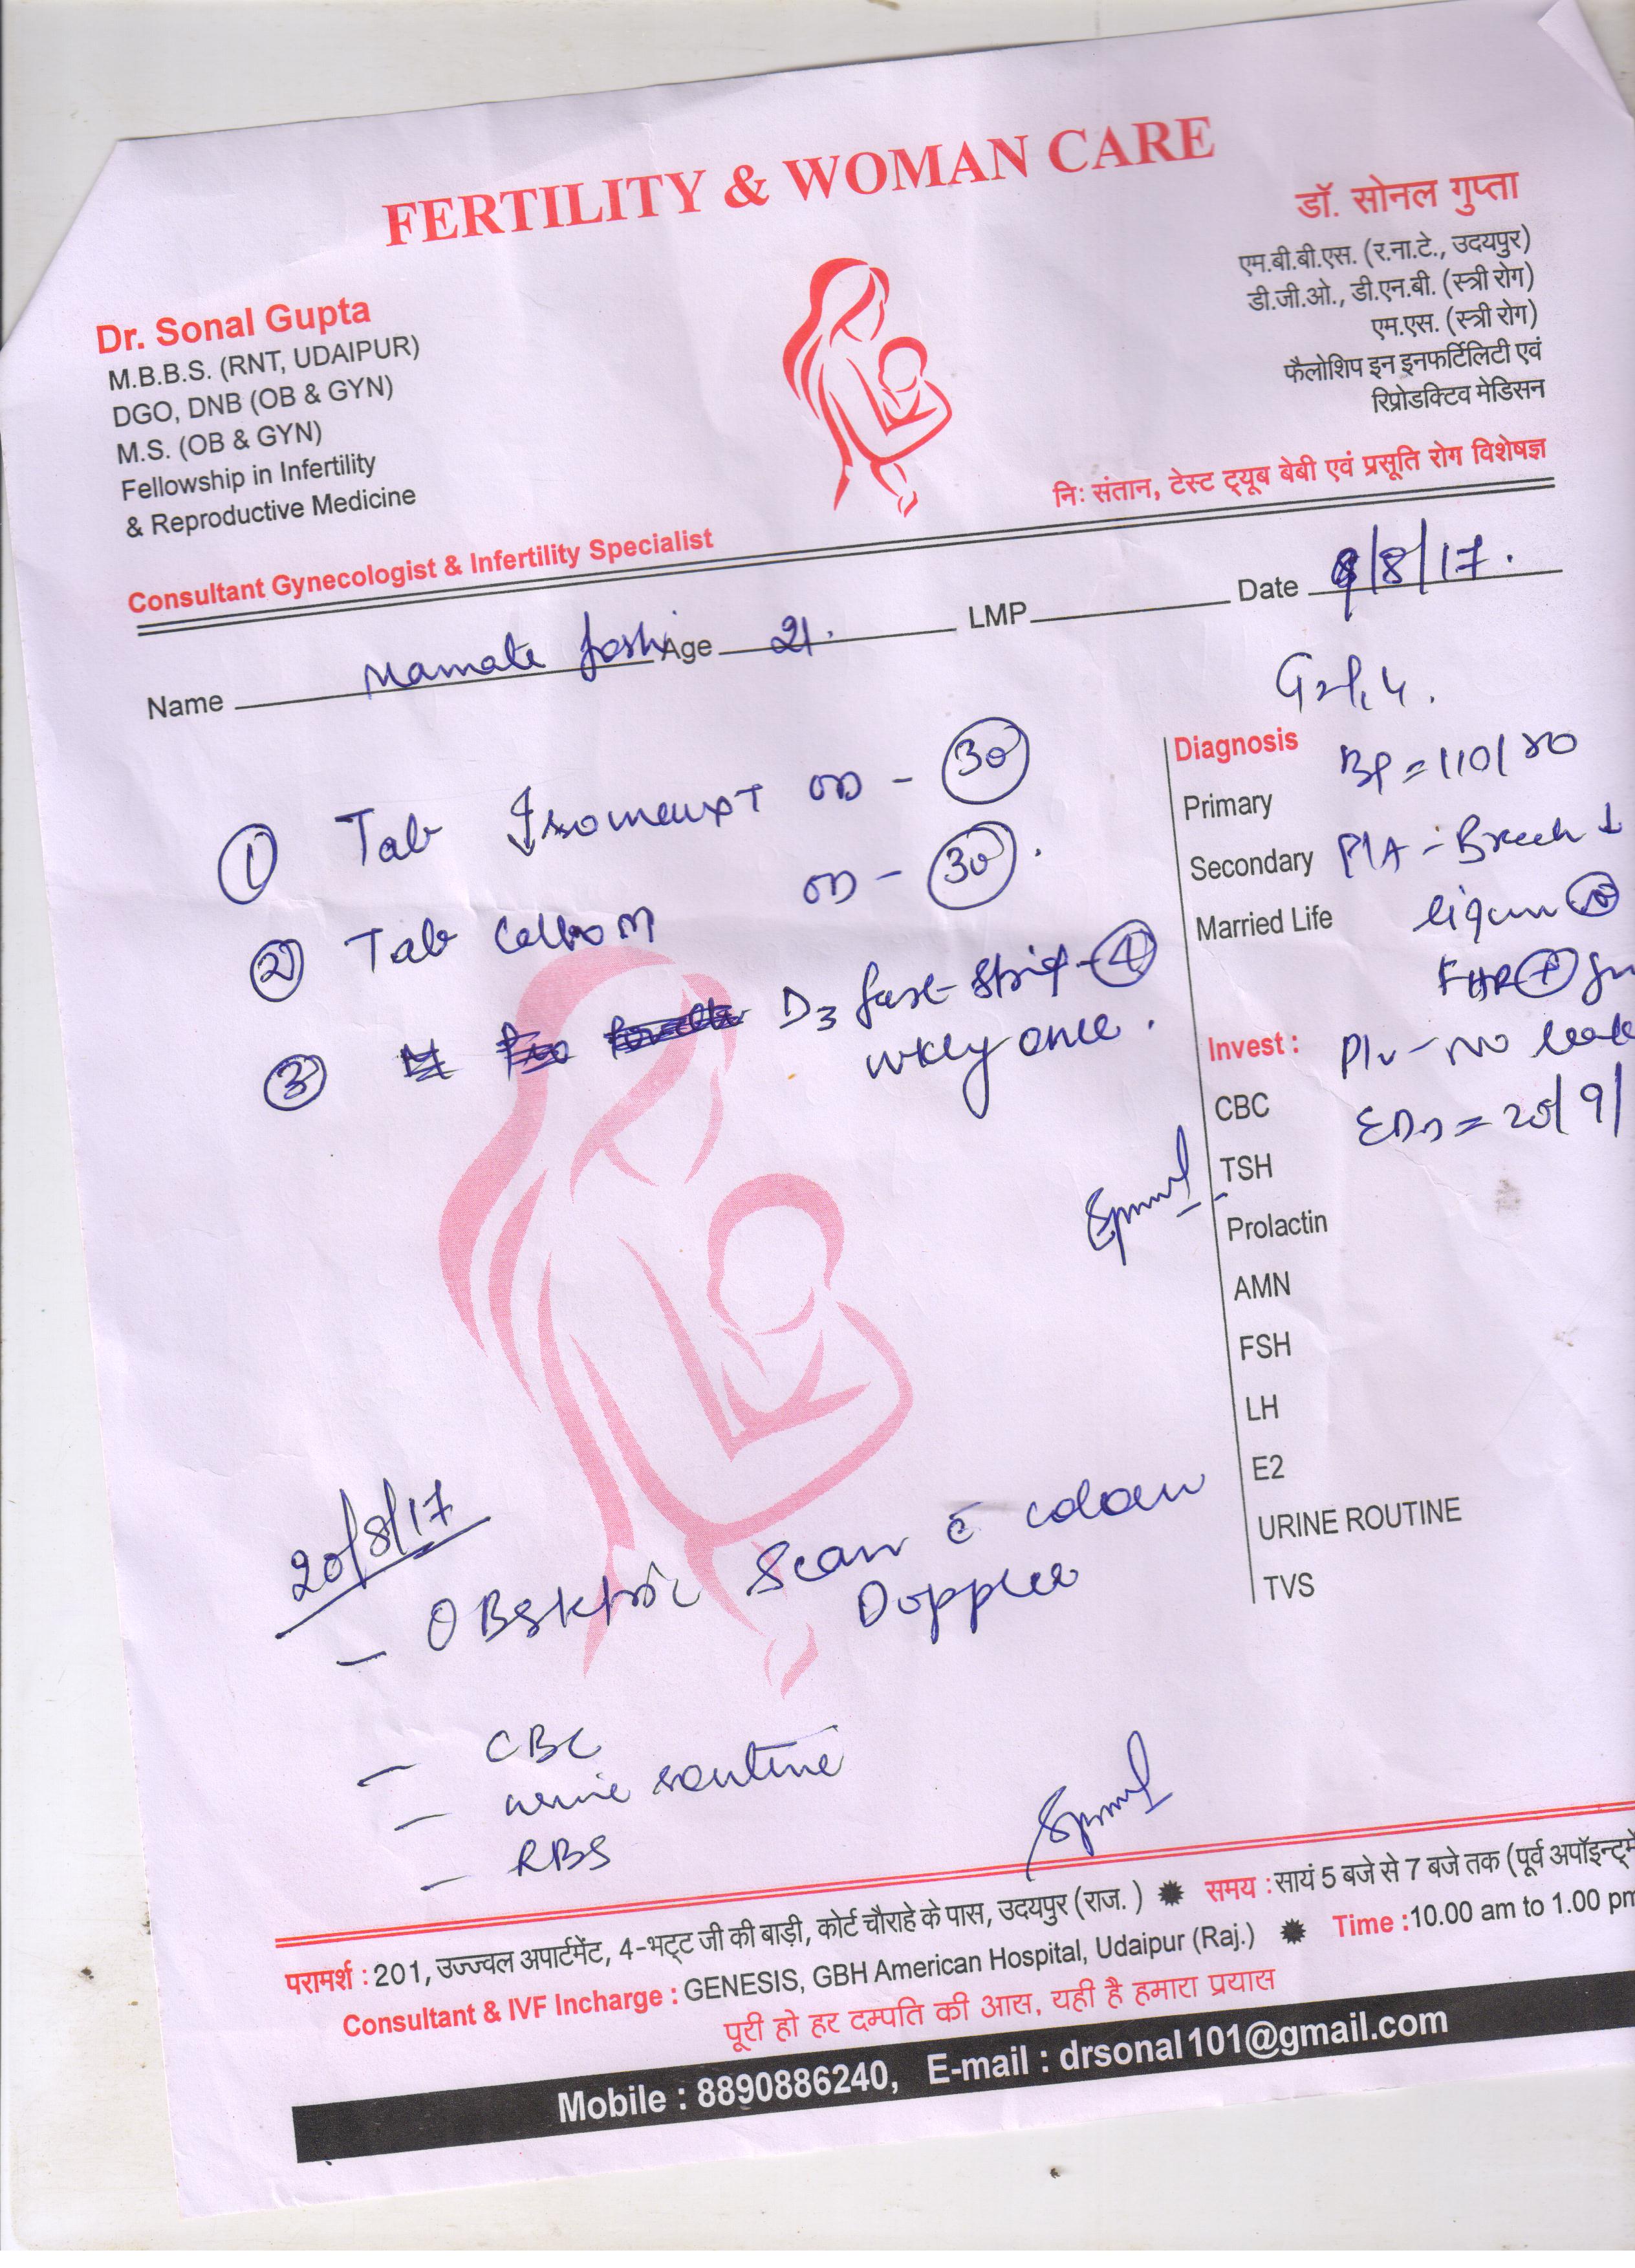 FERTILITY & WOMAN CARE
Dr. Sonal Gupta
M.B.B.S. (RNT, UDAIPUR)
DGO, DNB (OB & GYN)
M.S. (OB & GYN)
Fellowship in Infertility
& Reproductive Medicine
Consultant Gynecologist & Infertility Specialist
डॉ. सोनल गुप्ता
एम.बी.बी.एस. (र.ना.टे., उदयपुर)
डी.जी.ओ., डी.एन.बी. (स्त्री रोग)
एम.एस. (स्त्री रोग)
फैलोशिप इन इनफर्टिलिटी एवं
रिप्रोडक्टिव मेडिसन
निः संतान, टेस्ट ट्यूब बेबी एवं प्रसूति रोग विशेषज्ञ
Name Mamata Joshi Age 21. LMP Date /8/17.
① Tab OD - 30
② Tab OD - 30.
③ D3 fast strip - 4
wkly once.
Diagnosis
BP = 110/80
Primary
Secondary P/A - Breech
Married Life
liquor
FHR +
Invest :
P/V - No
CBC
EDD = 20/9/
TSH
Prolactin
AMN
FSH
LH
E2
URINE ROUTINE
TVS
20/8/17
- OBstetric Scan c̄ colour
Doppler
- CBC
- urine routine
- RBS
परामर्श : 201, उज्ज्वल अपार्टमेंट, 4-भट्ट जी की बाड़ी, कोर्ट चौराहे के पास, उदयपुर (राज. ) समय : सायं 5 बजे से 7 बजे तक (पूर्व
Consultant & IVF Incharge : GENESIS, GBH American Hospital, Udaipur (Raj.) Time : 10.00 am to 1.00 pm
पूरी हो हर दम्पति की आस, यही है हमारा प्रयास
Mobile : 8890886240, E-mail : drsonal101@gmail.com